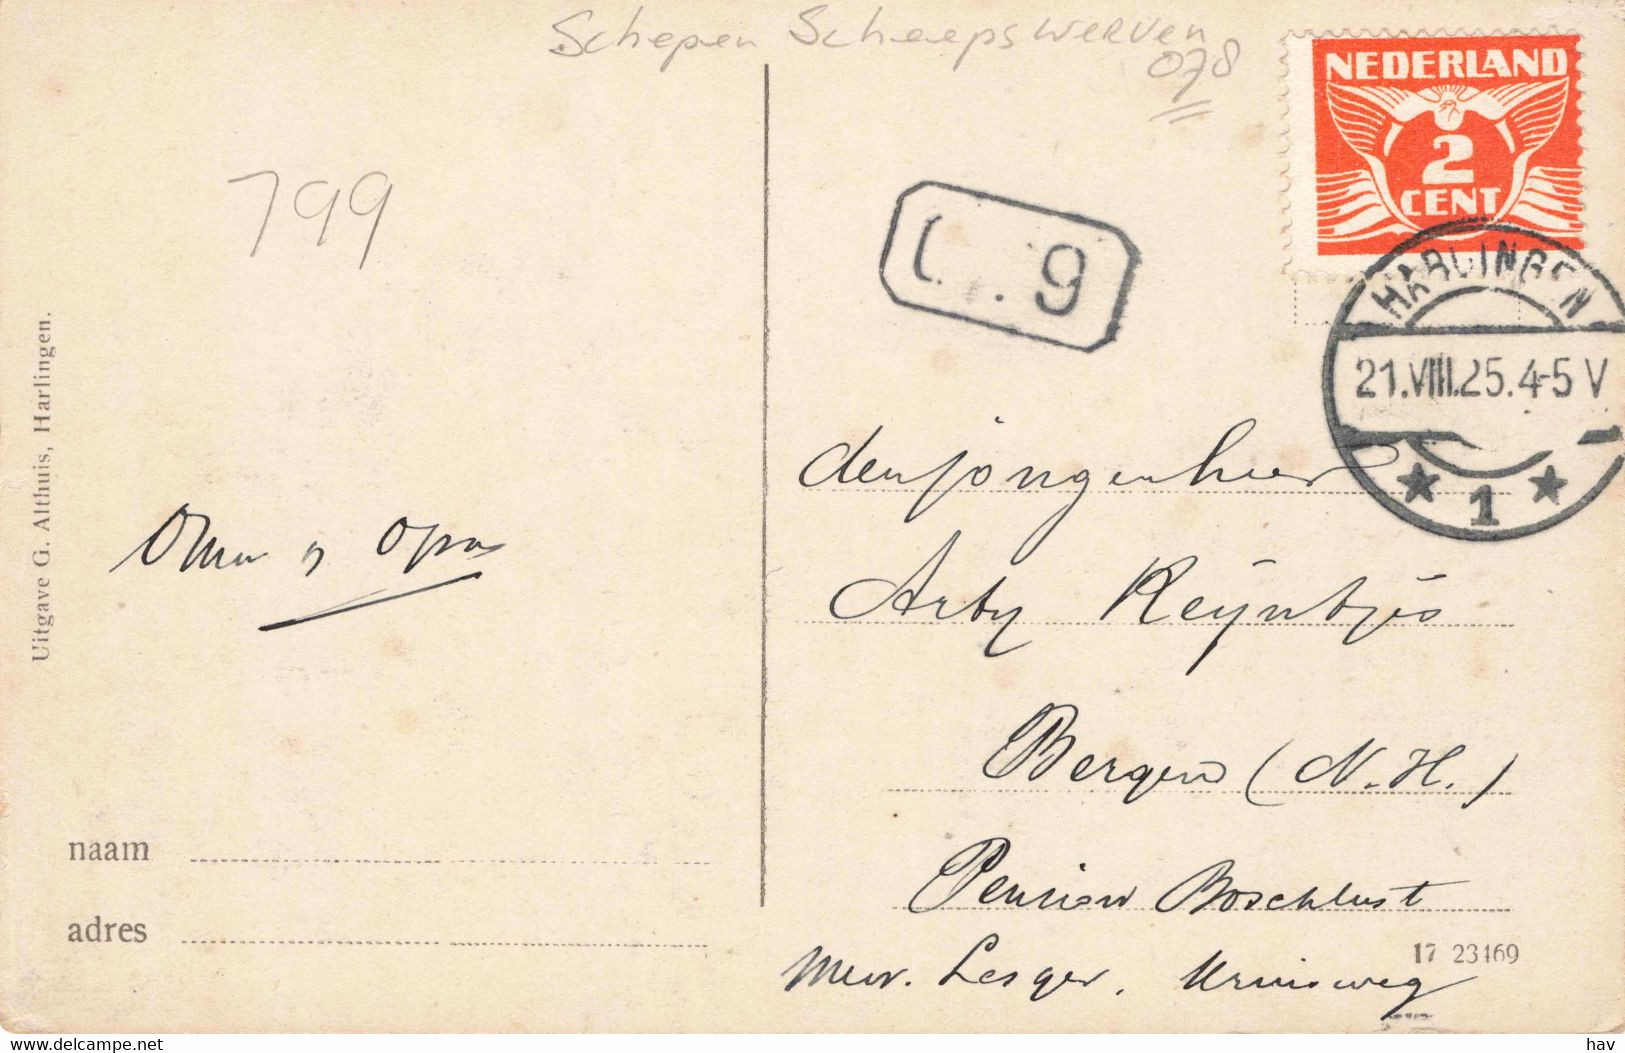 Schepen Scheepswerven
078
799
NEDERLAND
2
CENT
HARLINGEN
21.VIII.25.4-5 V
1
9
Uitgave G. Althuis, Harlingen.
Oma en Opa
den jongenheer
Arty Reijntjes
Bergen (N.H.)
Pension Boschlust
Mevr. Lesger, Kruisweg
naam
adres
17 23169
delcampe.net
hav